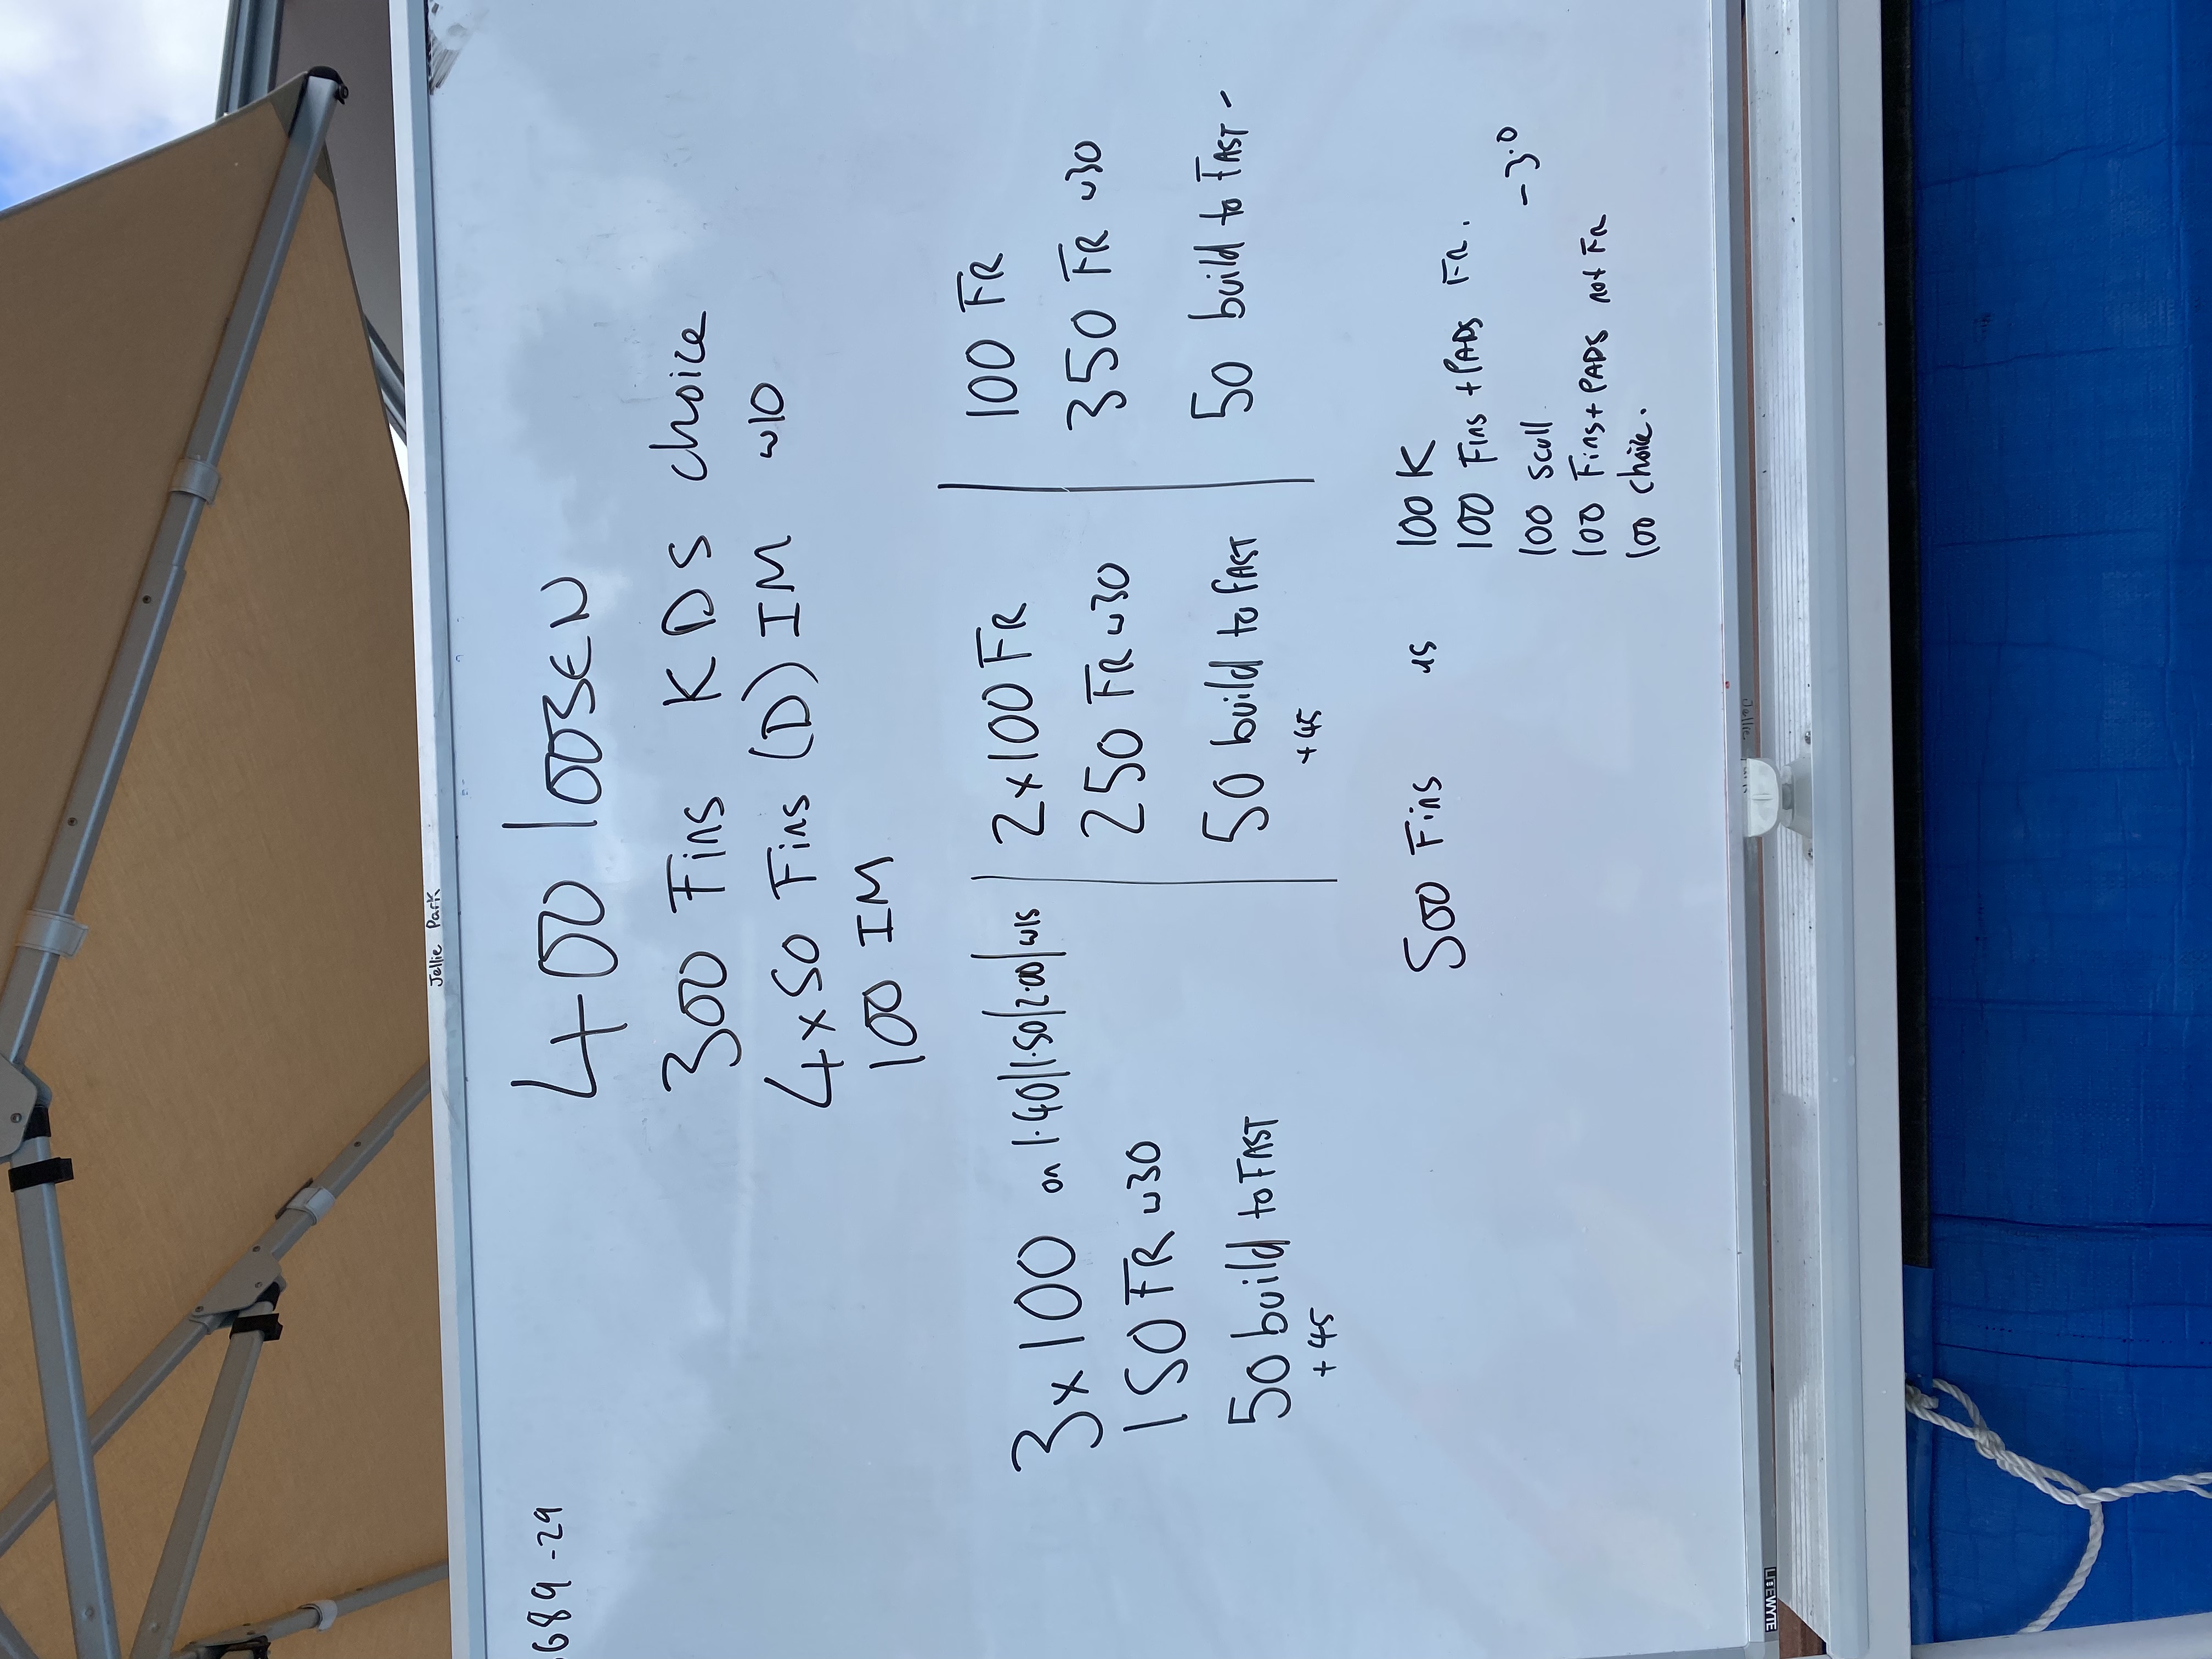 Jellie Park
6689-29
400 loosen
300 Fins K D S choice
4x50 Fins (D) IM w10
100 IM
3x100 on 1.40/1.50/2.00/w15
150 FR w30
50 build to FAST
+45
2x100 FR
250 FR w30
50 build to FAST
+45
100 FR
350 FR w30
50 build to FAST -
500 Fins as
100 K
100 Fins + PADS FR.
100 scull - 3.0
100 Fins + PADS not FR
100 choice.
Jellie
LITEWYTE